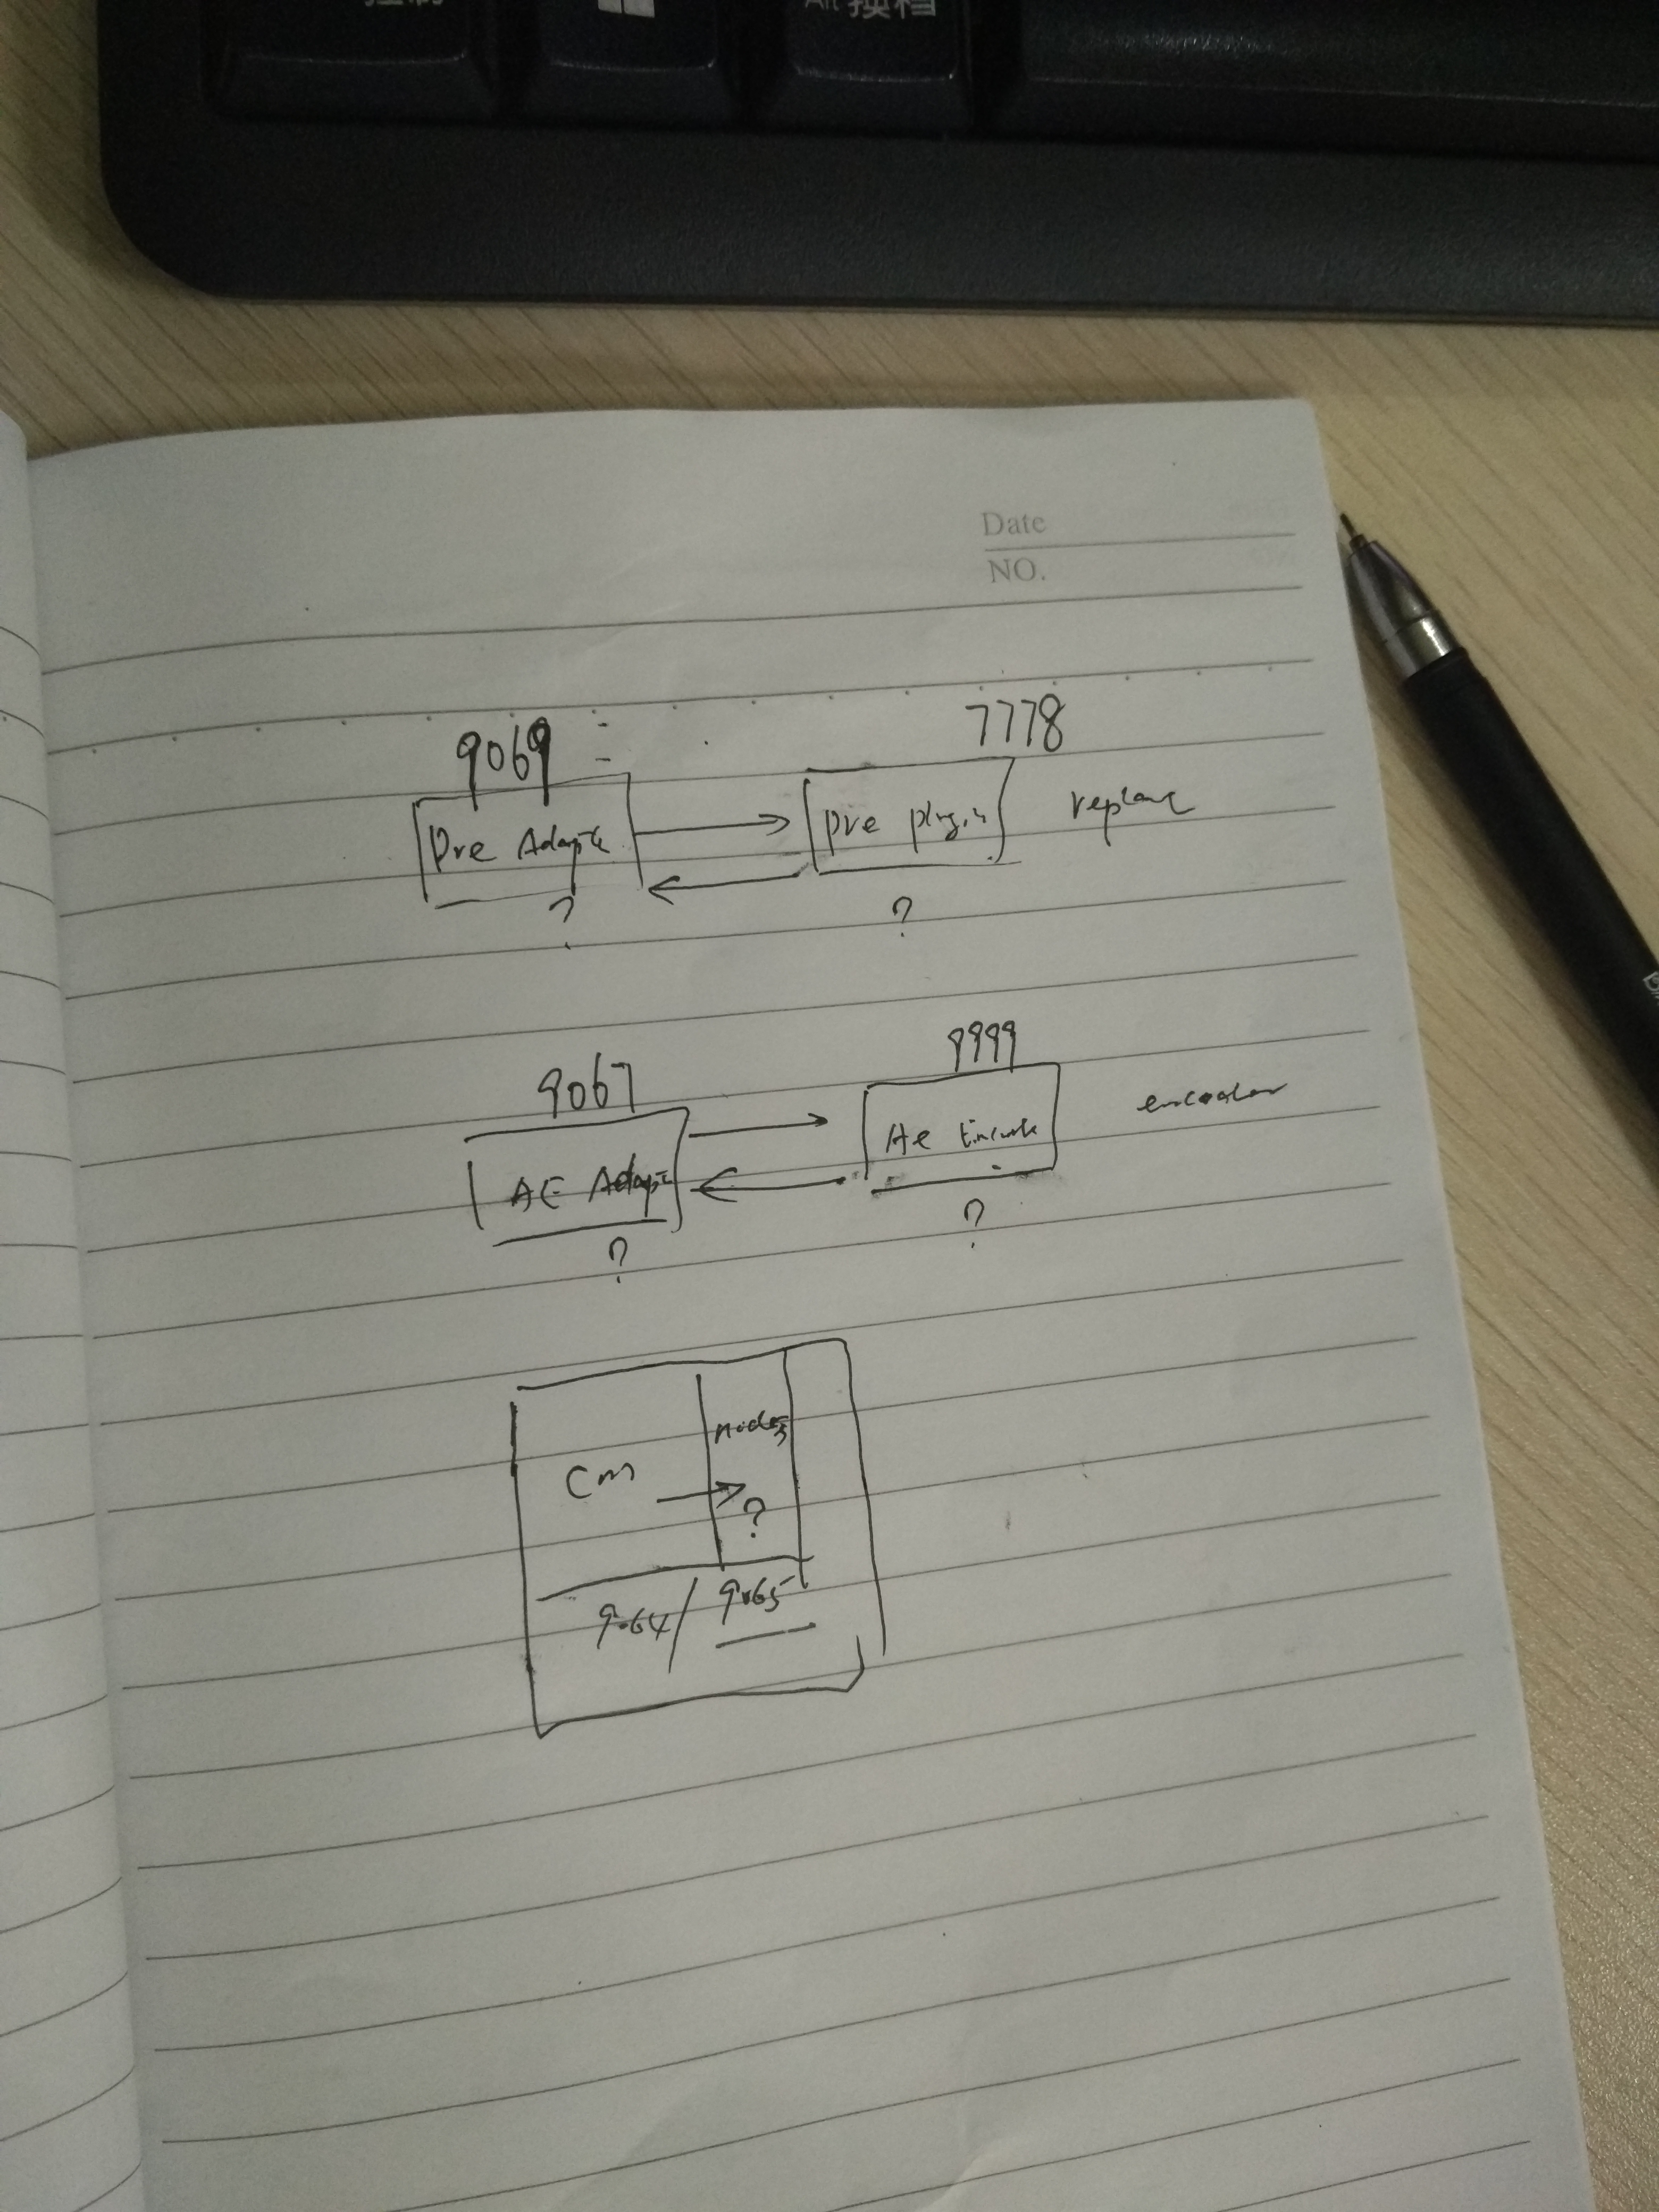 Alt 换档
Date
NO.
9069
7778
Pre Adapte
Pre plugin
replace
?
?
9067
9999
AE Adapte
Ae Encode
encoder
?
?
Cm
nodejs
?
9064/9065